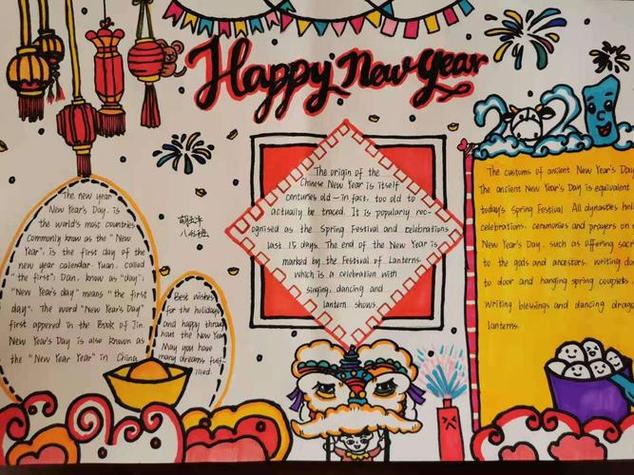 Happy New Year
2021
The new year
New Year's Day, is
the world's most countries
commonly know as the "New
Year", is the first day of the
new year calendar Yuan, called
"the first"; Dan, know as "day";
"New Year's day" means "the first
day". The word "New Year's Day"
first appered in the Book of Jin
New Year's Day is also known as
the "New Year Year" in China
Best wishes
for the holidays
and happy throu
hout the New Year
May you have
many dreams fulf
illed.
八.4班
The origin of the
Chinese New Year is itself
centuries old - in fact, too old to
actually be traced. It is popularly rec-
ognised as the Spring Festival and celebrations
last 15 days. The end of the New Year is
marked by the Festival of Lanterns
which is a celebration with
singing, dancing and
lantern shows.
The customs of ancient New Year's Day
The ancient New Year's Day is equivalent
today's Spring Festival. All dynasties hel
celebrations, ceremonies and prayers on
New Year's Day, such as offering sacr
to the gods and ancestors, writing do
to door and hanging spring couplets
writing blessings and dancing drago
lanterns.